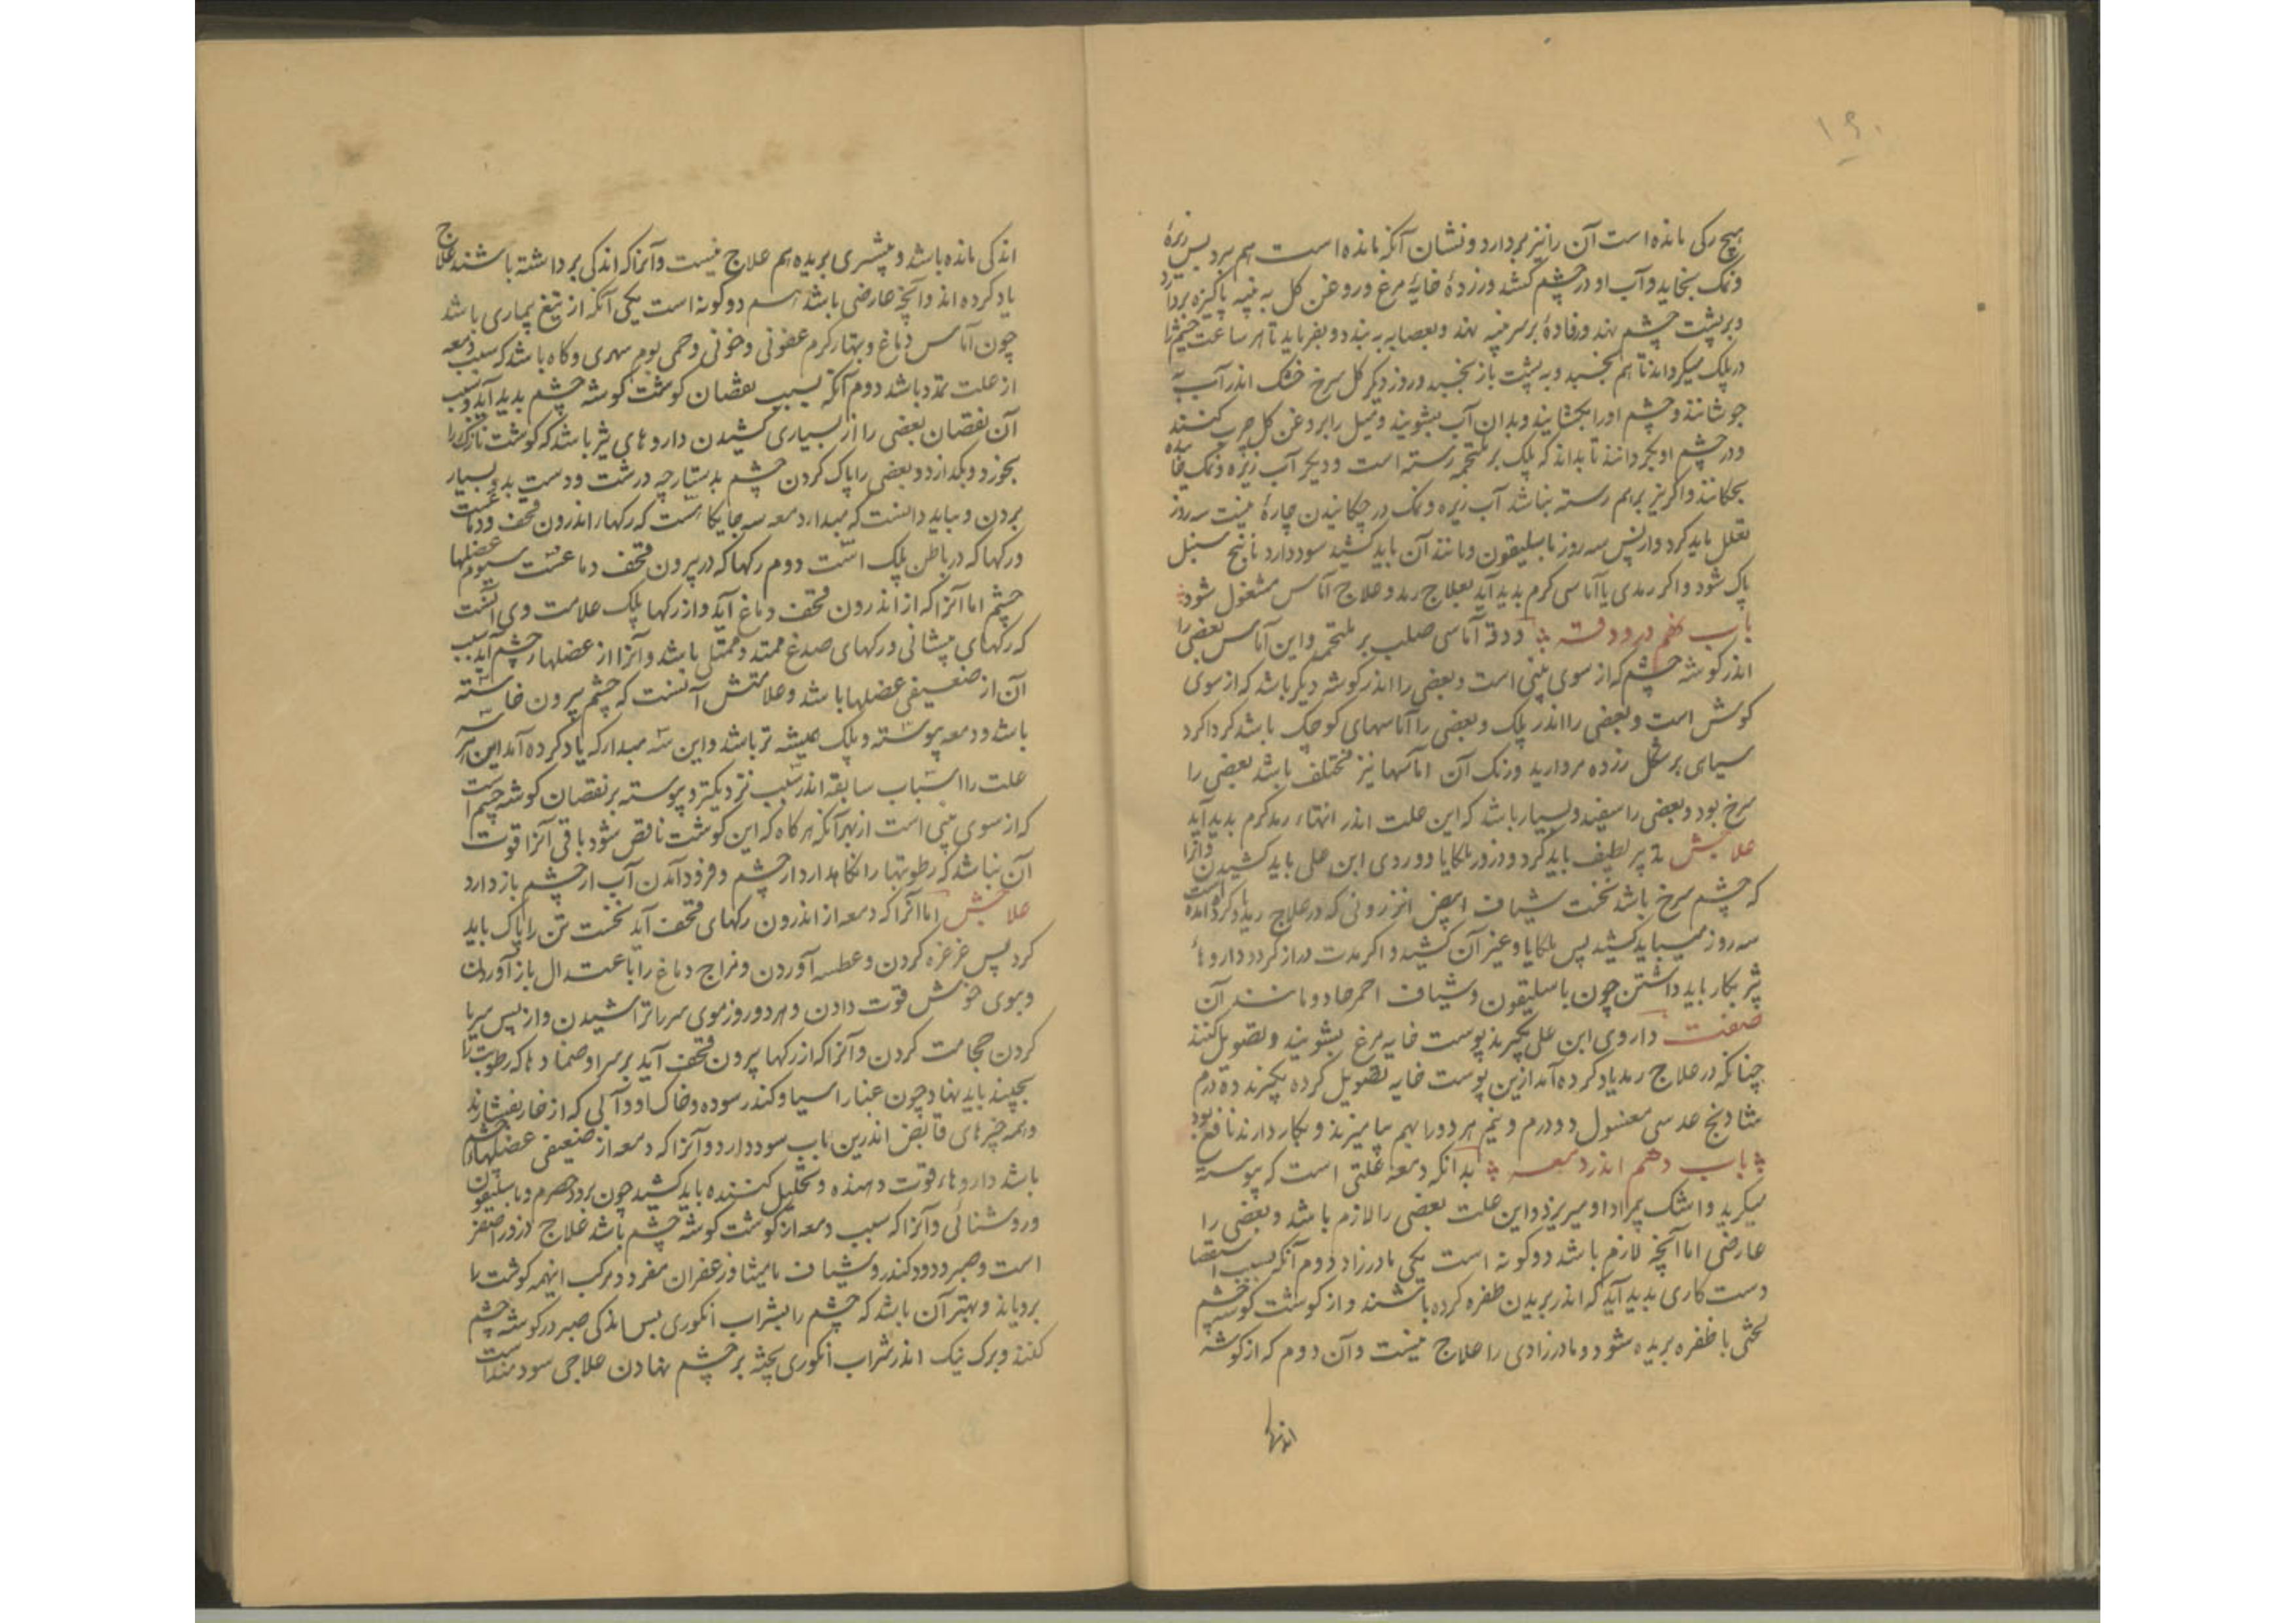 ۱۶۰
هیچ رکی مانده است آن را نیز بردارد و نشان آنکه مانده است هم ببرد پس زیرهٔ
و نمک بخاید و آب او در چشم کشد و زردهٔ خایهٔ مرغ و روغن کل به پنبه پاکیزه بردارد
و بر پشت چشم نهد و رفادهٔ بر سر پنبه نهد و بعصابه به بندد و بفرماید تا هر ساعت چشم را
در پلک میکرداند تا هم نخسبد و به پشت باز نخسبد و روز دیکر کل سرخ خشک اندر آب
جوشانند و چشم او را بکشایند و بدان آب بشویند و میل را بروغن کل چرب کنند
و در چشم او بکردانند تا بداند که پلک بر ملتحمه رسته است و دیکر آب زیره و نمک خاییده
بچکانند و اکر نیز برهم رسته نباشد آب زیره و نمک در چکانیدن چارهٔ نیست سه روز
تعلل باید کرد و از پس سه روز باسلیقون و مانند آن باید کشید سود دارد تا بیخ سبل
پاک شود و اکر رمدی یا آماسی کرم بدید آید بعلاج رمد و علاج آماس مشغول شود
باب نهم در ودقه ودقه آماسی صلب بر ملتحمه و این آماس بعضی را
اندر کوشه چشم که از سوی بینی است و بعضی را اندر کوشه دیکر باشد که از سوی
کوش است و بعضی را اندر پلک و بعضی را آماسهای کوچک باشد کرداکرد
سیاهی بر شکل رزده مروارید و رنک آن اماسها نیز مختلف باشد بعضی را
سرخ بود و بعضی را سفید و بسیار باشد که این علت اندر انتهاء رمد کرم بدید آید
علاجش تدبیر لطیف باید کرد و ذرور ملکایا و وردی ابن علی باید کشیدن و آنرا
که چشم سرخ باشد نخست شیاف ابیض انزروتی که در علاج رمد یاد کرده امده است
سه روز میباید کشید پس ملکایا و غیر آن کشید و اکر مدت دراز کردد داروهاء
تیز بکار باید داشتن چون باسلیقون و شیاف احمر حاد و مانند آن
صفت داروی ابن علی بکیرند پوست خایه مرغ بشویند و تصویل کنند
چنانکه در علاج رمد یاد کرده آمد ازین پوست خایه تصویل کرده بکیرند ده درم
شادنج عدسی مغسول دو درم و نیم هر دو را بهم بیامیزند و بکار دارند نافع بود
باب دهم اندر دمعه بدانکه دمعه علتی است که پیوسته
میکرید و اشک بیمراد او میریزد و این علت بعضی را لازم باشد و بعضی را
عارضی اما آنچه لازم باشد دو کونه است یکی مادرزاد دوم آنکه بسبب استقصا
دست کاری بدید آید که اندر بریدن ظفره کرده باشند و از کوشت کوشه چشم
لختی با ظفره بریده شود و مادرزادی را علاج نیست و آن دوم که از کوشه
اندکی مانده باشد و بیشتری بریده هم علاج نیست و آنرا که اندکی برداشته باشند علاج
یاد کرده اند و آنچه عارضی باشد هم دو کونه است یکی آنکه از تبغ بیماری باشد
چون آماس دماغ و تبهاء کرم عفونی و خونی و حمی یوم سهری و کاه باشد که سبب دمعه
از علت تمدد باشد دوم آنکه بسبب نقصان کوشت کوشه چشم بدید آید و سبب
آن نقصان بعضی را از بسیاری کشیدن داروهای تیز باشد که کوشت نازک را
بخورد و بکدازد و بعضی را پاک کردن چشم بدستارچه درشت و دست بدو بسیار
بردن و بباید دانست که مبداء دمعه سه جایکاهست که رکهاء اندرون قحف و دماغست
و رکها که در باطن پلک است دوم رکها که در بیرون قحف دماغست سیوم عضلها
چشم اما آنرا که از اندرون قحف دماغ آید و از رکها پلک علامت وی آنست
که رکهای پیشانی و رکهای صدغ ممتد و ممتلی باشد و آنرا از عضلهاء چشم آید سبب
آن از ضعیفی عضلها باشد و علامتش آنست که چشم بیرون خاسته
باشد و دمعه پیوسته و پلک همیشه تر باشد و این سه مبداء که یاد کرده آمد این هر سه
علت را اسباب سابقه اند سبب نزدیکتر و پیوسته بر نقصان کوشه چشم است
که از سوی بینی است از بهر آنکه هر کاه که این کوشت ناقص شود باقی آنرا قوت
آن نباشد که رطوبتها را نکاهدارد از چشم و فرود آمدن آب از چشم باز دارد
علاجش اما آنرا که دمعه از اندرون رکهای قحف آید نخست تن را پاک باید
کرد پس غرغره کردن و عطسه آوردن و مزاج دماغ را باعتدال باز آوردن
و بوی خوش قوت دادن و هر دو روز موی سر را تراشیدن و از پس سر یا
کردن حجامت کردن و آنرا که از رکها بیرون قحف آید بر سر او ضمادها که رطوبت را
بچیند باید نهاد چون غبار اسیا و کندر سوده و خاک و آبی که از خار بفشارند
و همه چیزهای قابض اندرین باب سود دارد و آنرا که دمعه از ضعیفی عضلهاء چشم
باشد داروهاء قوت دهنده و تحلیل کننده باید کشید چون برود حصرم و باسلیقون
و روشنائی و آنرا که سبب دمعه از کوشت کوشه چشم باشد علاج ذرور اصفر
است و صبر و دود کندر و شیاف مامیثا و زعفران مفرد و مرکب اینهمه کوشت را
برویاند و بهتر آن باشد که چشم را بشراب انکوری پس اندکی صبر در کوشه چشم
کنند و برک نیک اندر شراب انکوری پخته بر چشم نهادن علاجی سودمند است